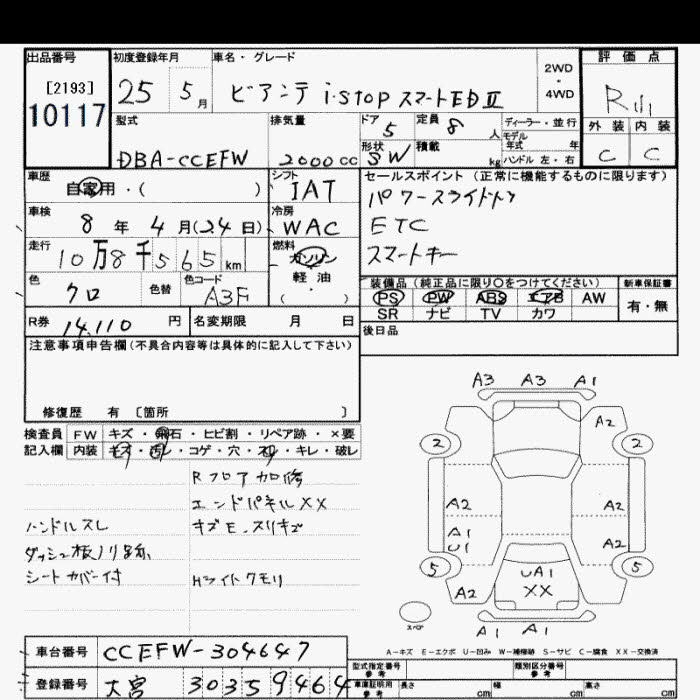 出品番号 初度登録年月 車名・グレード 2WD・4WD 評価点
[2193]
10117
25 5月 ビアンテ i-stop スマートEDⅡ
型式 排気量 ドア 5 定員 8人 ディーラー・並行
モデル年式 年
外装 内装
DBA-CCEFW 2000cc 形状 SW 積載 kg ハンドル 左・右 C C
車歴 シフト セールスポイント (正常に機能するものに限ります)
自家用・( ) IAT パワースライドドア
車検 冷房 ETC
8年 4月(24日) WAC スマートキー
走行 燃料
10万8千565km ガソリン
軽油
・
( )
色 色替 色コード 装備品 (純正品に限り○をつけてください) 新車保証書
クロ A3F PS PW ABS エアB AW 有・無
SR ナビ TV カワ
R券 14,110円 名変期限 月 日 後日品
注意事項申告欄(不具合内容等は具体的に記入して下さい)
修復歴 有 〔箇所 〕
検査員 FW キズ・飛石・ヒビ割・リペア跡・×要
記入欄 内装 キズ・汚レ・コゲ・穴・スレ・キレ・破レ
Rフロア加修
エンドパネルXX
ハンドルスレ キズE、スリキズ
シートカバー付 Hライトクモリ
A3 A3 A1
A2
2 2
A2 A2
A1
U1
A2
5 5
A2 UA1
XX
A2
スペア
A1 A1
A-キズ E-エクボ U-凹み W-補修跡 S-サビ C-腐食 XX-交換済
車台番号 CCEFW-304647
型式指定番号 参考 類別区分番号 参考
登録番号 大宮 303 59464
車庫証明用 参考 長さ cm 幅 cm 高さ cm